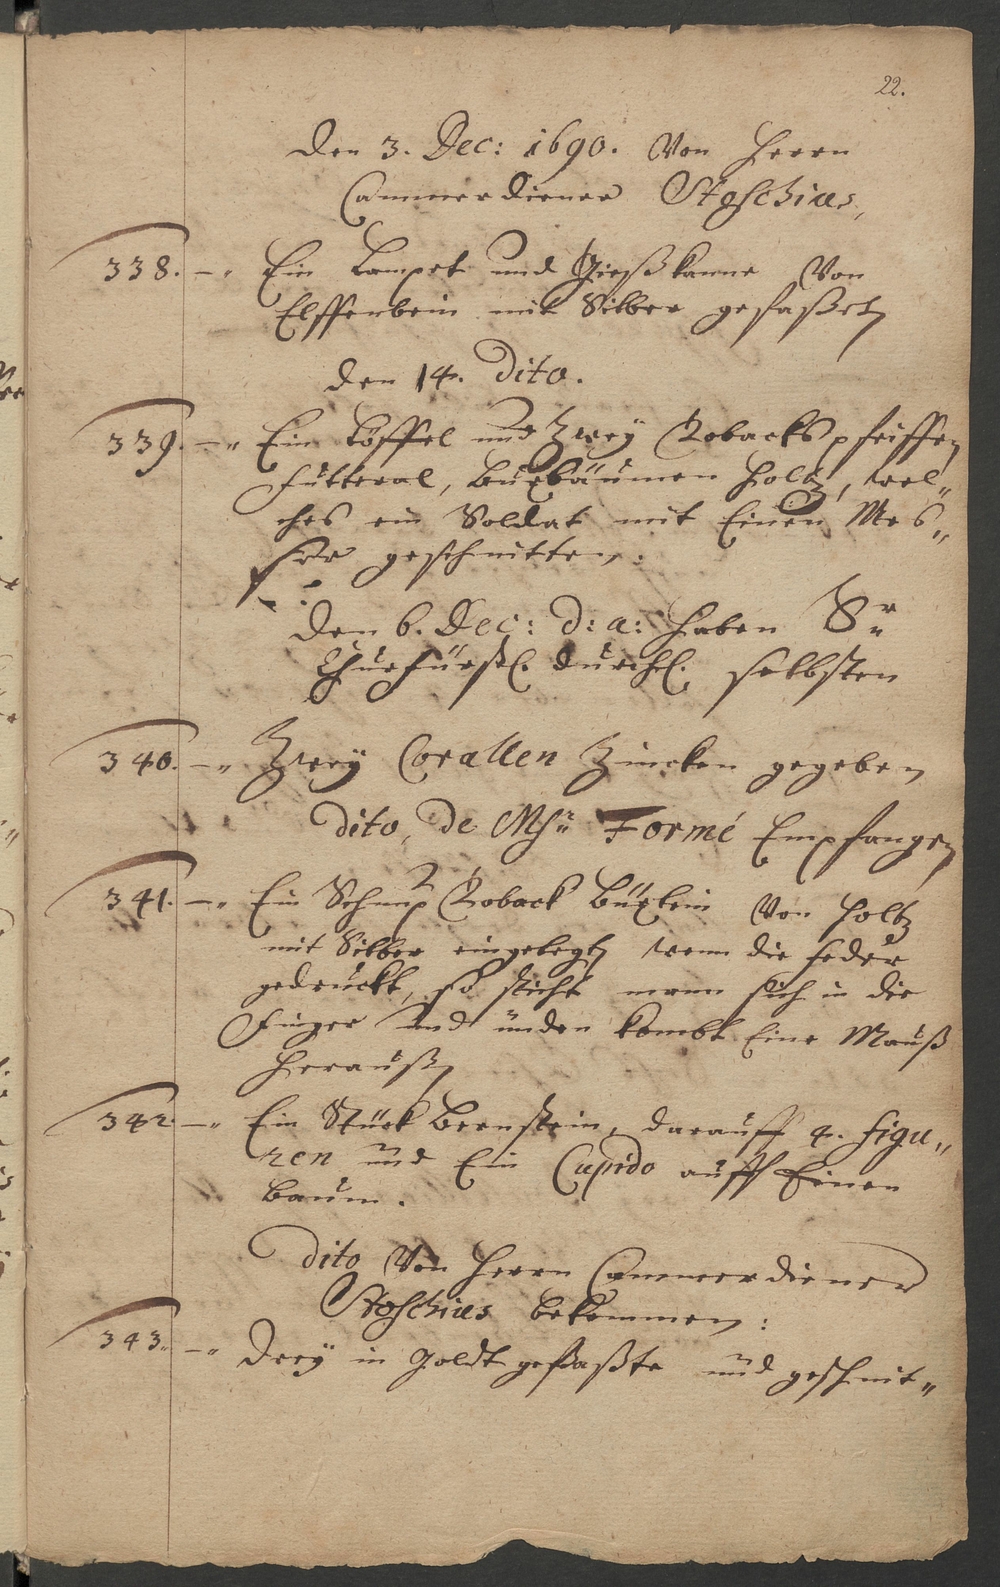 22.
Den 3. Dec: 1690. Von Herrn
Cammerdiener Stoschius,
338. -„ Ein Lampet und Gießkanne Von
Elffenbein mit Silber gefaßet,
den 14. Dito.
339. -„ Ein Löffel und Zweÿ Tobackspfeiffen
Futteral, Buxbäumen Holtz, wel„
ches ein Soldat mit Einen Mes„
ser geschnitten.
Den 6. Dec: d: a: haben Sr
Churfürstl. Durchl. selbsten
340. -„ Zweÿ Corallen Zincken gegeben
dito, de Msr Formé Empfangen
341. -„ Ein Schnup Toback Büxlein Von Holtz
mit Silber eingelegt, wenn die feder
gedruckt, so sticht mann sich in die
Finger und unden kombt Eine Mauß
herauß,
342. -„ Ein Stück Bernstein, darauff 4. figu„
ren und Ein Cupido auff Einen
Baum.
dito Von Herrn Cammerdiener
Stoschius bekommen:
343. -„ Dreÿ in Goldt gefaßte und geschnit„